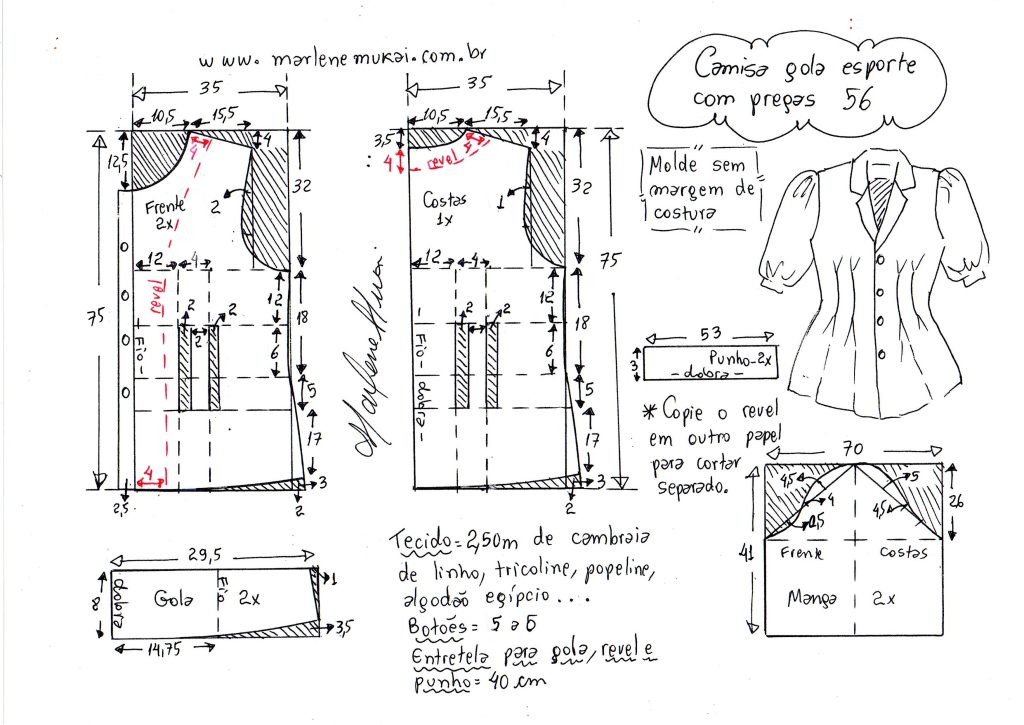 www.marlenemukai.com.br
Camisa gola esporte
com pregas 56
35
10,5 15,5
12,5
4
4
32
Frente
2x
2
12 4
Revel
75
2
2
2
12
18
6
Fio
5
17
4
3
2,5
2
35
10,5 15,5
3,5
4
4
revel
4
32
Costas
1x
1
12 4
75
2
2
2
12
18
6
- Fio - dobra -
5
17
3
2
Marlene Mukai
Molde sem
margem de
costura
53
3
Punho-2x
- dobra -
* Copie o revel
em outro papel
para cortar
separado.
70
4,5
5
4
4,5
0,5
26
41
Frente Costas
Manga 2x
29,5
8
dobra
Gola
Fio
2x
1
3,5
14,75
Tecido = 2,50m de cambraia
de linho, tricoline, popeline,
algodão egípcio...
Botões = 5 a 6
Entretela para gola, revel e
punho = 40 cm